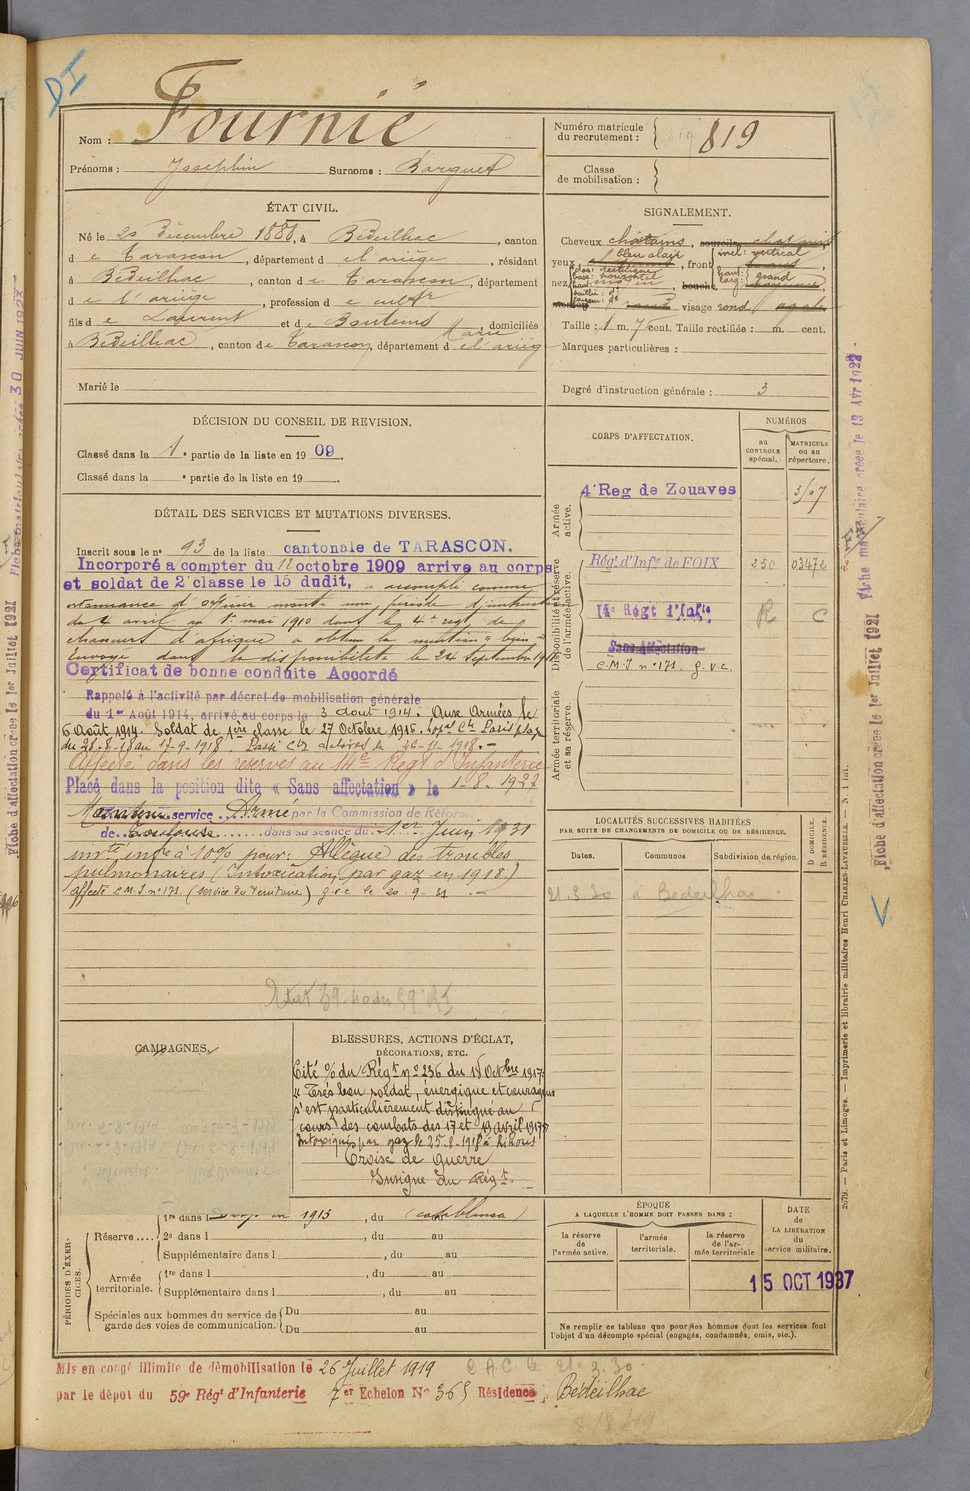 DI
Nom : Fournié
Prénoms : Josephin Surnoms : Barguet
Numéro matricule du recrutement : 819
Classe de mobilisation :
ÉTAT CIVIL.
Né le 20 Décembre 1888, à Bédeilhac, canton
d e Tarascon, département d el ariège, résidant
à Bédeilhac, canton d e Tarascon, département
d e l'ariège, profession d e cultr
fils d e Laurent et d e domiciliés
Marie
à Bédeilhac, canton de Tarascon, département d el'arièg
Marié le
SIGNALEMENT.
Cheveux chatains, sourcils
yeux bleu clair, front incl: vertical
nez
visage rond
Taille : 1 m. 7 cent. Taille rectifiée : m. cent.
Marques particulières :
Degré d'instruction générale : 3
DÉCISION DU CONSEIL DE REVISION.
Classé dans la 1 e partie de la liste en 1909.
Classé dans la e partie de la liste en 19
DÉTAIL DES SERVICES ET MUTATIONS DIVERSES.
Inscrit sous le no 93 de la liste cantonale de TARASCON.
Incorporé a compter du 12 octobre 1909 arrive au corps
et soldat de 2e classe le 15 dudit, a accompli comme
ordonnance d'officier monté une période d'instruction
du 2 avril au 1er mai 1910 dans le 4e regt de
chasseurs d'afrique a obtenu la mention " bien "
Envoyé dans la disponibilité le 24 Septembre 1911
Certificat de bonne conduite Accordé
Rappelé à l'activité par décret de mobilisation générale
du 1er Août 1914, arrivé au corps le 3 aout 1914. Aux Armées le
6 Août 1914. Soldat de 1ère classe le 27 Octobre 1916.
du 28-8-18 au 17-9-1918. Passé le 26-11-1918.
Affecté dans les reserves au 14e Regt d'Infanterie
Placé dans la position dite « Sans affectation » le 1-8-1927
Maintenu service Armé par la Commission de Réforme
de Toulouse dans sa séance du 1er Juin 1931
invté infre à 10% pour: Allègue des troubles
pulmonaires (Intoxication par gaz en 1918.)
affecté C.M.I no 171 g.v.c le 20-9-31
CORPS D'AFFECTATION.
NUMÉROS
au CONTROLE spécial.
MATRICULE ou au répertoire.
Armée active.
4e Reg de Zouaves
Disponibilité et réserve de l'armée active.
Régt d'Infie de FOIX 250 03472
14e Régt d'Infie R C
Sans Affectation
C.M.I no 171 g.v.c.
Armée territoriale et sa réserve.
LOCALITÉS SUCCESSIVES HABITÉES
PAR SUITE DE CHANGEMENTS DE DOMICILE OU DE RÉSIDENCE.
Dates. Communes Subdivision de région. D DOMICILE. R RÉSIDENCE.
21.3.30 à Bedeilhac
CAMPAGNES.
BLESSURES, ACTIONS D'ÉCLAT,
DÉCORATIONS, ETC.
Cité % du Régt no 236 du 18 Octobre 1917:
"Très bon soldat, énergique et courageux
s'est particulièrement distingué au
cours des combats des 17 et 19 avril 1917"
Intoxiqué par gaz le 25-8-1918 à
Croix de Guerre
Insigne du Régt.
PÉRIODES D'EXERCICES.
Réserve....
1re dans l en 1913, du (casablanca)
2e dans l , du au
Supplémentaire dans l , du au
Armée territoriale.
1re dans l , du au
Supplémentaire dans l , du au
Spéciales aux hommes du service de garde des voies de communication.
Du au
Du au
ÉPOQUE
A LAQUELLE L'HOMME DOIT PASSER DANS :
la réserve de l'armée active.
l'armée territoriale.
la réserve de l'armée territoriale
DATE de LA LIBÉRATION du service militaire.
15 OCT 1937
Ne remplir ce tableau que pour des hommes dont les services font
l'objet d'un décompte spécial (engagés, condamnés, omis, etc.).
Mis en congé illimité de démobilisation le 26 Juillet 1919
par le dépôt du 59e Régt d'Infanterie 7er Echelon No 365 Résidence Bédeilhac
C.A.C. le 21.3.30
2679. — Paris et Limoges. — Imprimerie et librairie militaires Henri CHARLES-LAVAUZELLE. — N. 1 Int.
Fiche d'affectation créée le 1er Juillet 1921 Fiche matriculaire créée le 13 Avr 1922
Fiche d'affectation créée le 1er Juillet 1921
30 JUIN 1923